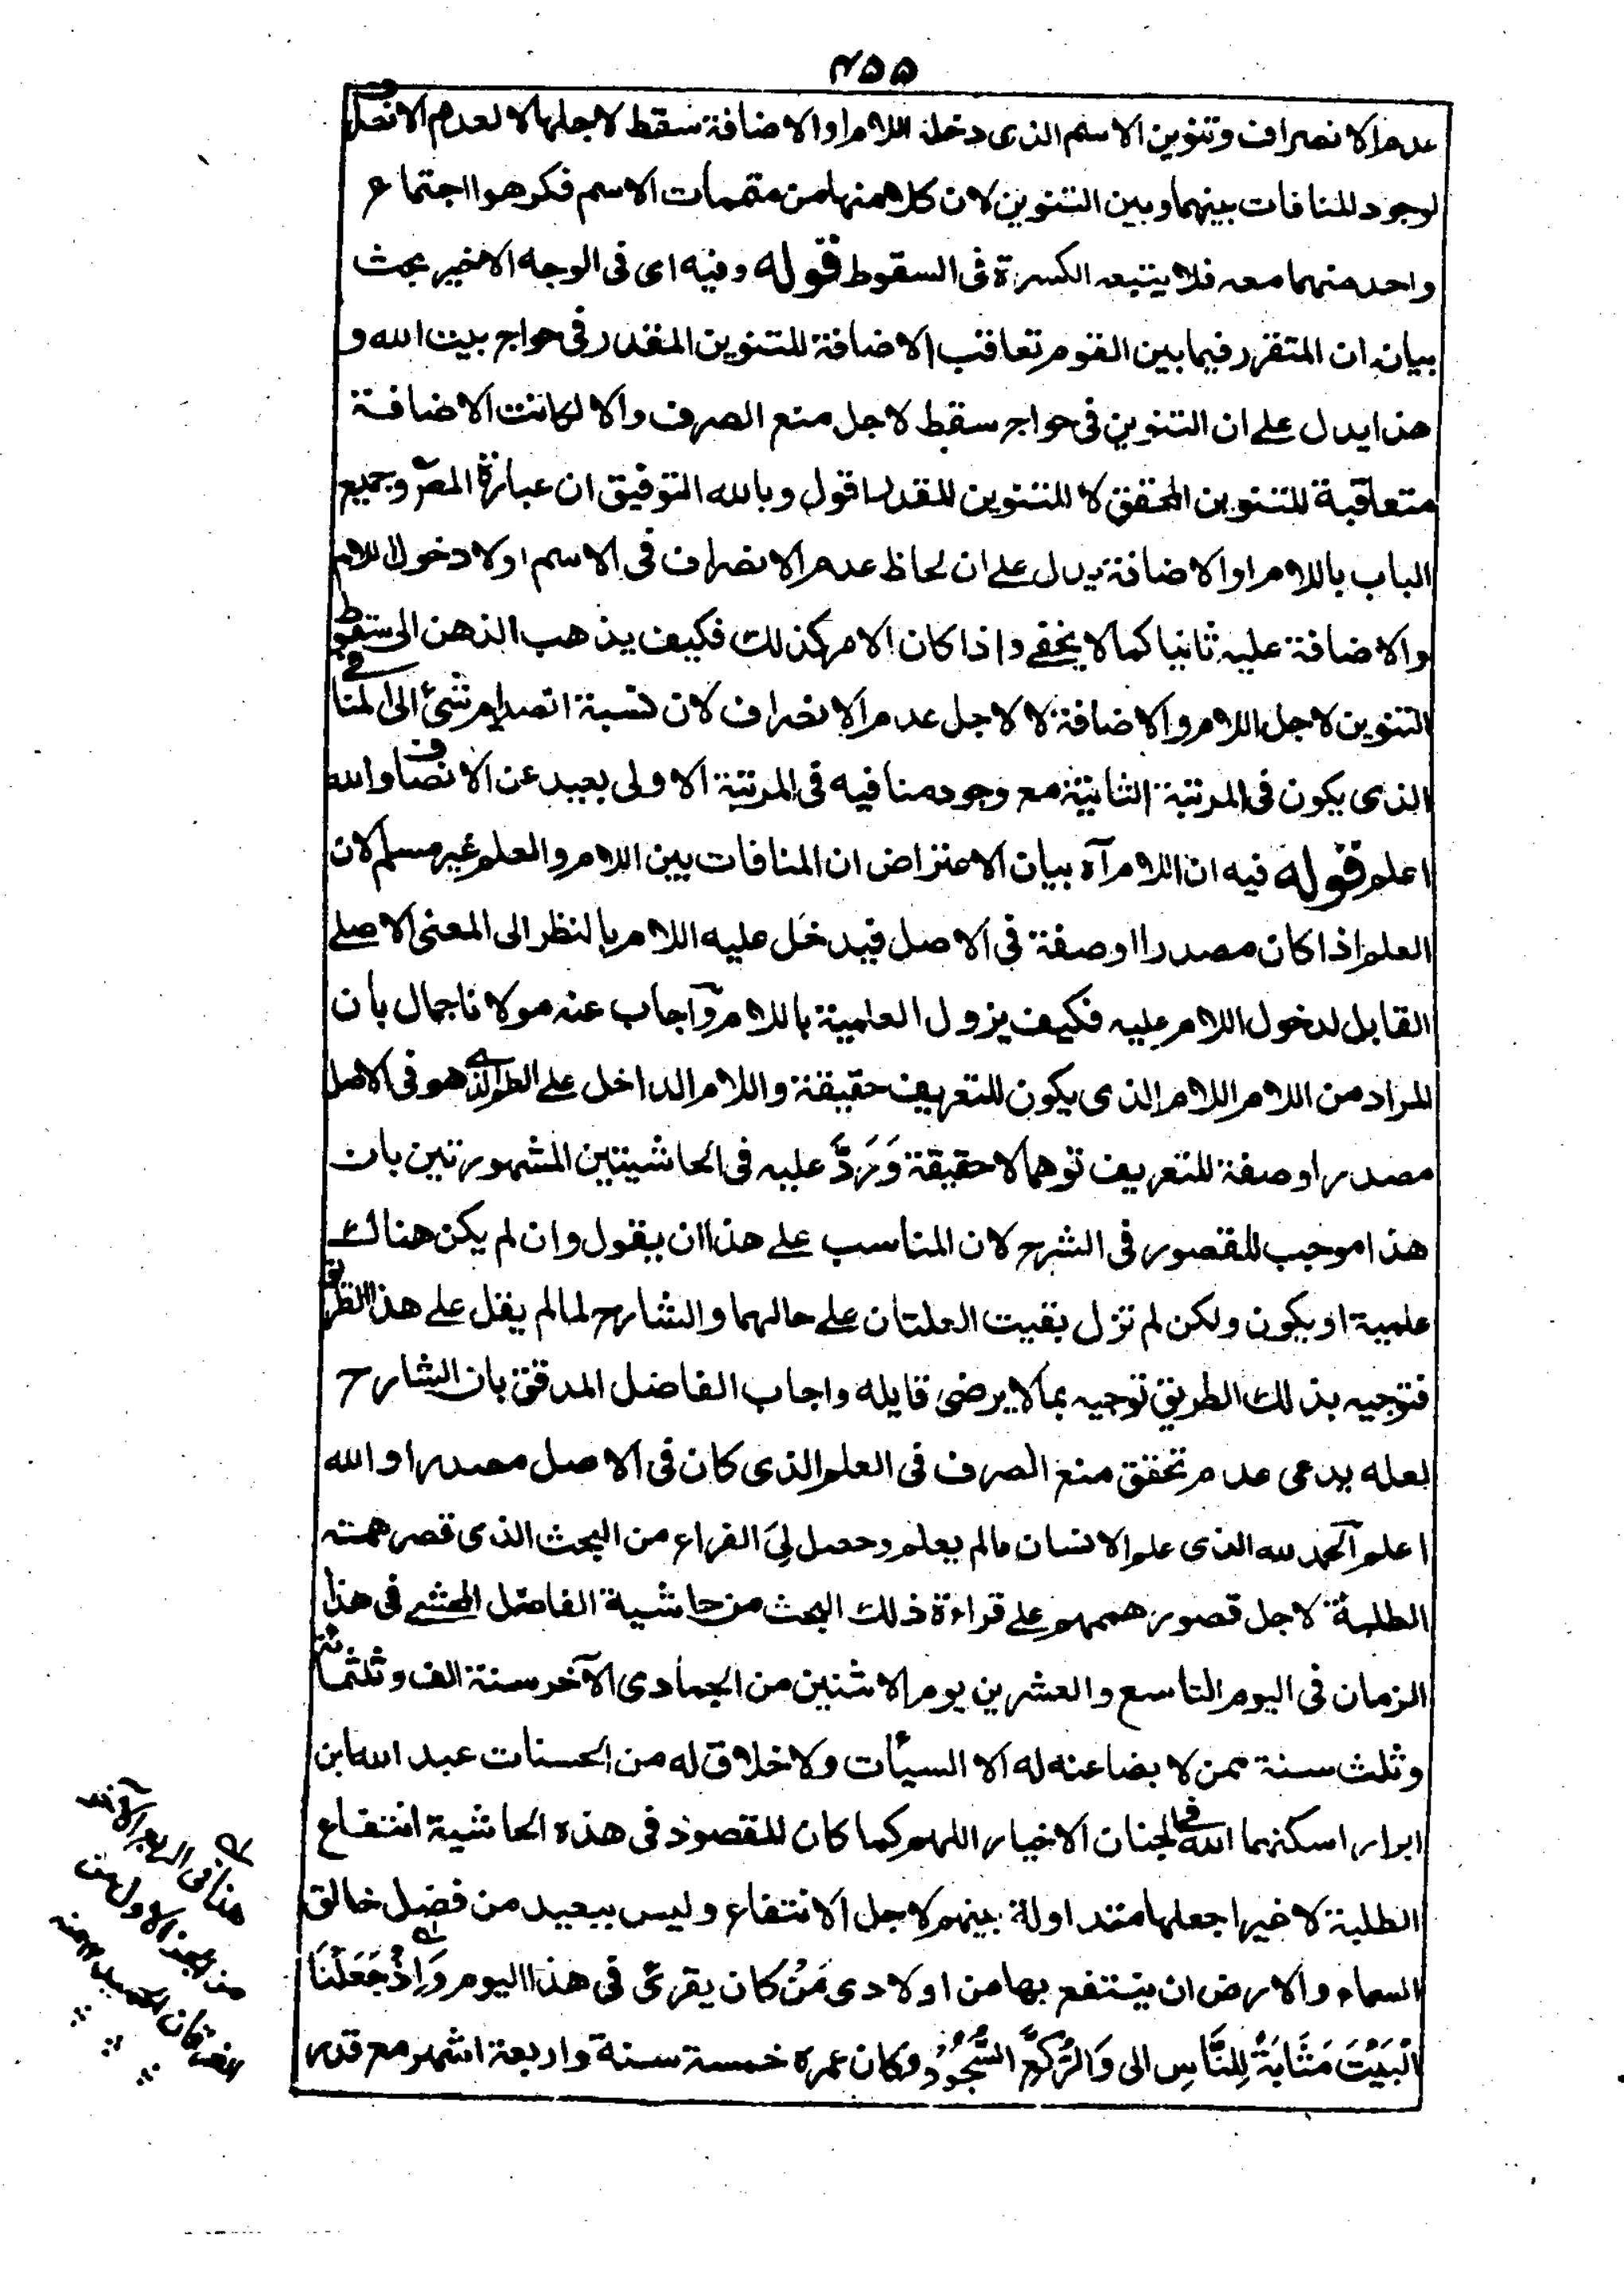 ٢٥٥
عدم الانصراف وتنوين الاسم الذى دخله اللام او الاضافة سقط لاجلها لا لعدم الانصراف
لوجود المنافات بينهما وبين التنوين لان كلا منها من متممات الاسم فكرهوا اجتماع
واحد منهما معه فلا يتبعه الكسرة فى السقوط قوله وفيه اى فى الوجه الاخير بحث
بيانه ان المتقرر فيما بين القوم تعاقب الاضافة للتنوين المقدر فى حواج بيت الله و
هذا يدل على ان التنوين فى حواج سقط لاجل منع الصرف والا لكانت الاضافة
متعاقبة للتنوين المحقق لا للتنوين المقدر اقول وبالله التوفيق ان عبارة المصر وجميع
الباب باللام او الاضافة يدل على ان لحاظ عدم الانصراف فى الاسم اولا دخول اللام
والاضافة عليه ثانيا كما لا يخفى واذا كان الامر كذلك فكيف يذهب الذهن الى سقوط
التنوين لاجل اللام والاضافة لا لاجل عدم الانصراف لان نسبة انصدام شئ الى المنافى
الذى يكون فى المرتبة الثانية مع وجود منافيه فى المرتبة الاولى بعيد عن الانصاف والله
اعلم قوله فيه ان اللام آه بيان الاعتراض ان المنافات بين اللام والعلم غير مسلم لان
العلم اذا كان مصدرا او صفة فى الاصل فيدخل عليه اللام بالنظر الى المعنى الاصلے
القابل لدخول اللام عليه فكيف يزول العلمية باللام وآجاب عنه مولانا جمال بان
المراد من اللام اللام الذى يكون للتعريف حقيقة واللام الداخل على العلم الذے هو فى الاصل
مصدرا او صفة للتعريف توهما لا حقيقة وَرَدَّ عليه فى الحاشيتين المشهورتين بان
هذا موجب للقصور فى الشرح لان المناسب على هذا ان يقول وان لم يكن هناك
علمية او يكون ولكن لم تزل بقيت العلتان على حالهما والشارح لما لم يقل على هذا الطريق
فتوجيه بذلك الطريق توجيه بما لا يرضى قايله واجاب الفاضل المدقق بان الشارح
لعله يدعى عدم تحقق منع الصرف فى العلم الذى كان فى الاصل مصدرا والله
اعلم آلحمد لله الذى علم الانسان ما لم يعلم وحصل لِىَ الفراع من البحث الذى قصر همته
الطلبة لاجل قصور هممهم على قراءة ذلك البحث من حاشية الفاضل المحشے فى هذا
الزمان فى اليوم التاسع والعشرين يوم الاثنين من الجمادى الآخر سنة الف وثلثمائة
وثلث سنة ممن لا بضاعته له الا السيّأت ولا خلاق له من الحسنات عبد الله ابن
ابرار اسكنهما الله فى الجنان الاخيار اللهم كما كان المقصود فى هذه الحاشية انتفاع
الطلبة لا خيرا جعلها متداولة بينهم لاجل الانتفاع وليس ببعيد من فضل خالق
السماء والارض ان ينتفع بها من اولادى مَنْ كان يقرئ فى هذا اليوم وَاِذْ جَعَلْنَا
الْبَيْتَ مَثَابَةً لِّلنَّاسِ الى وَالرُّكَّعِ السُّجُوْدِ وكان عمره خمسة سنة واربعة اشهر مع قدر